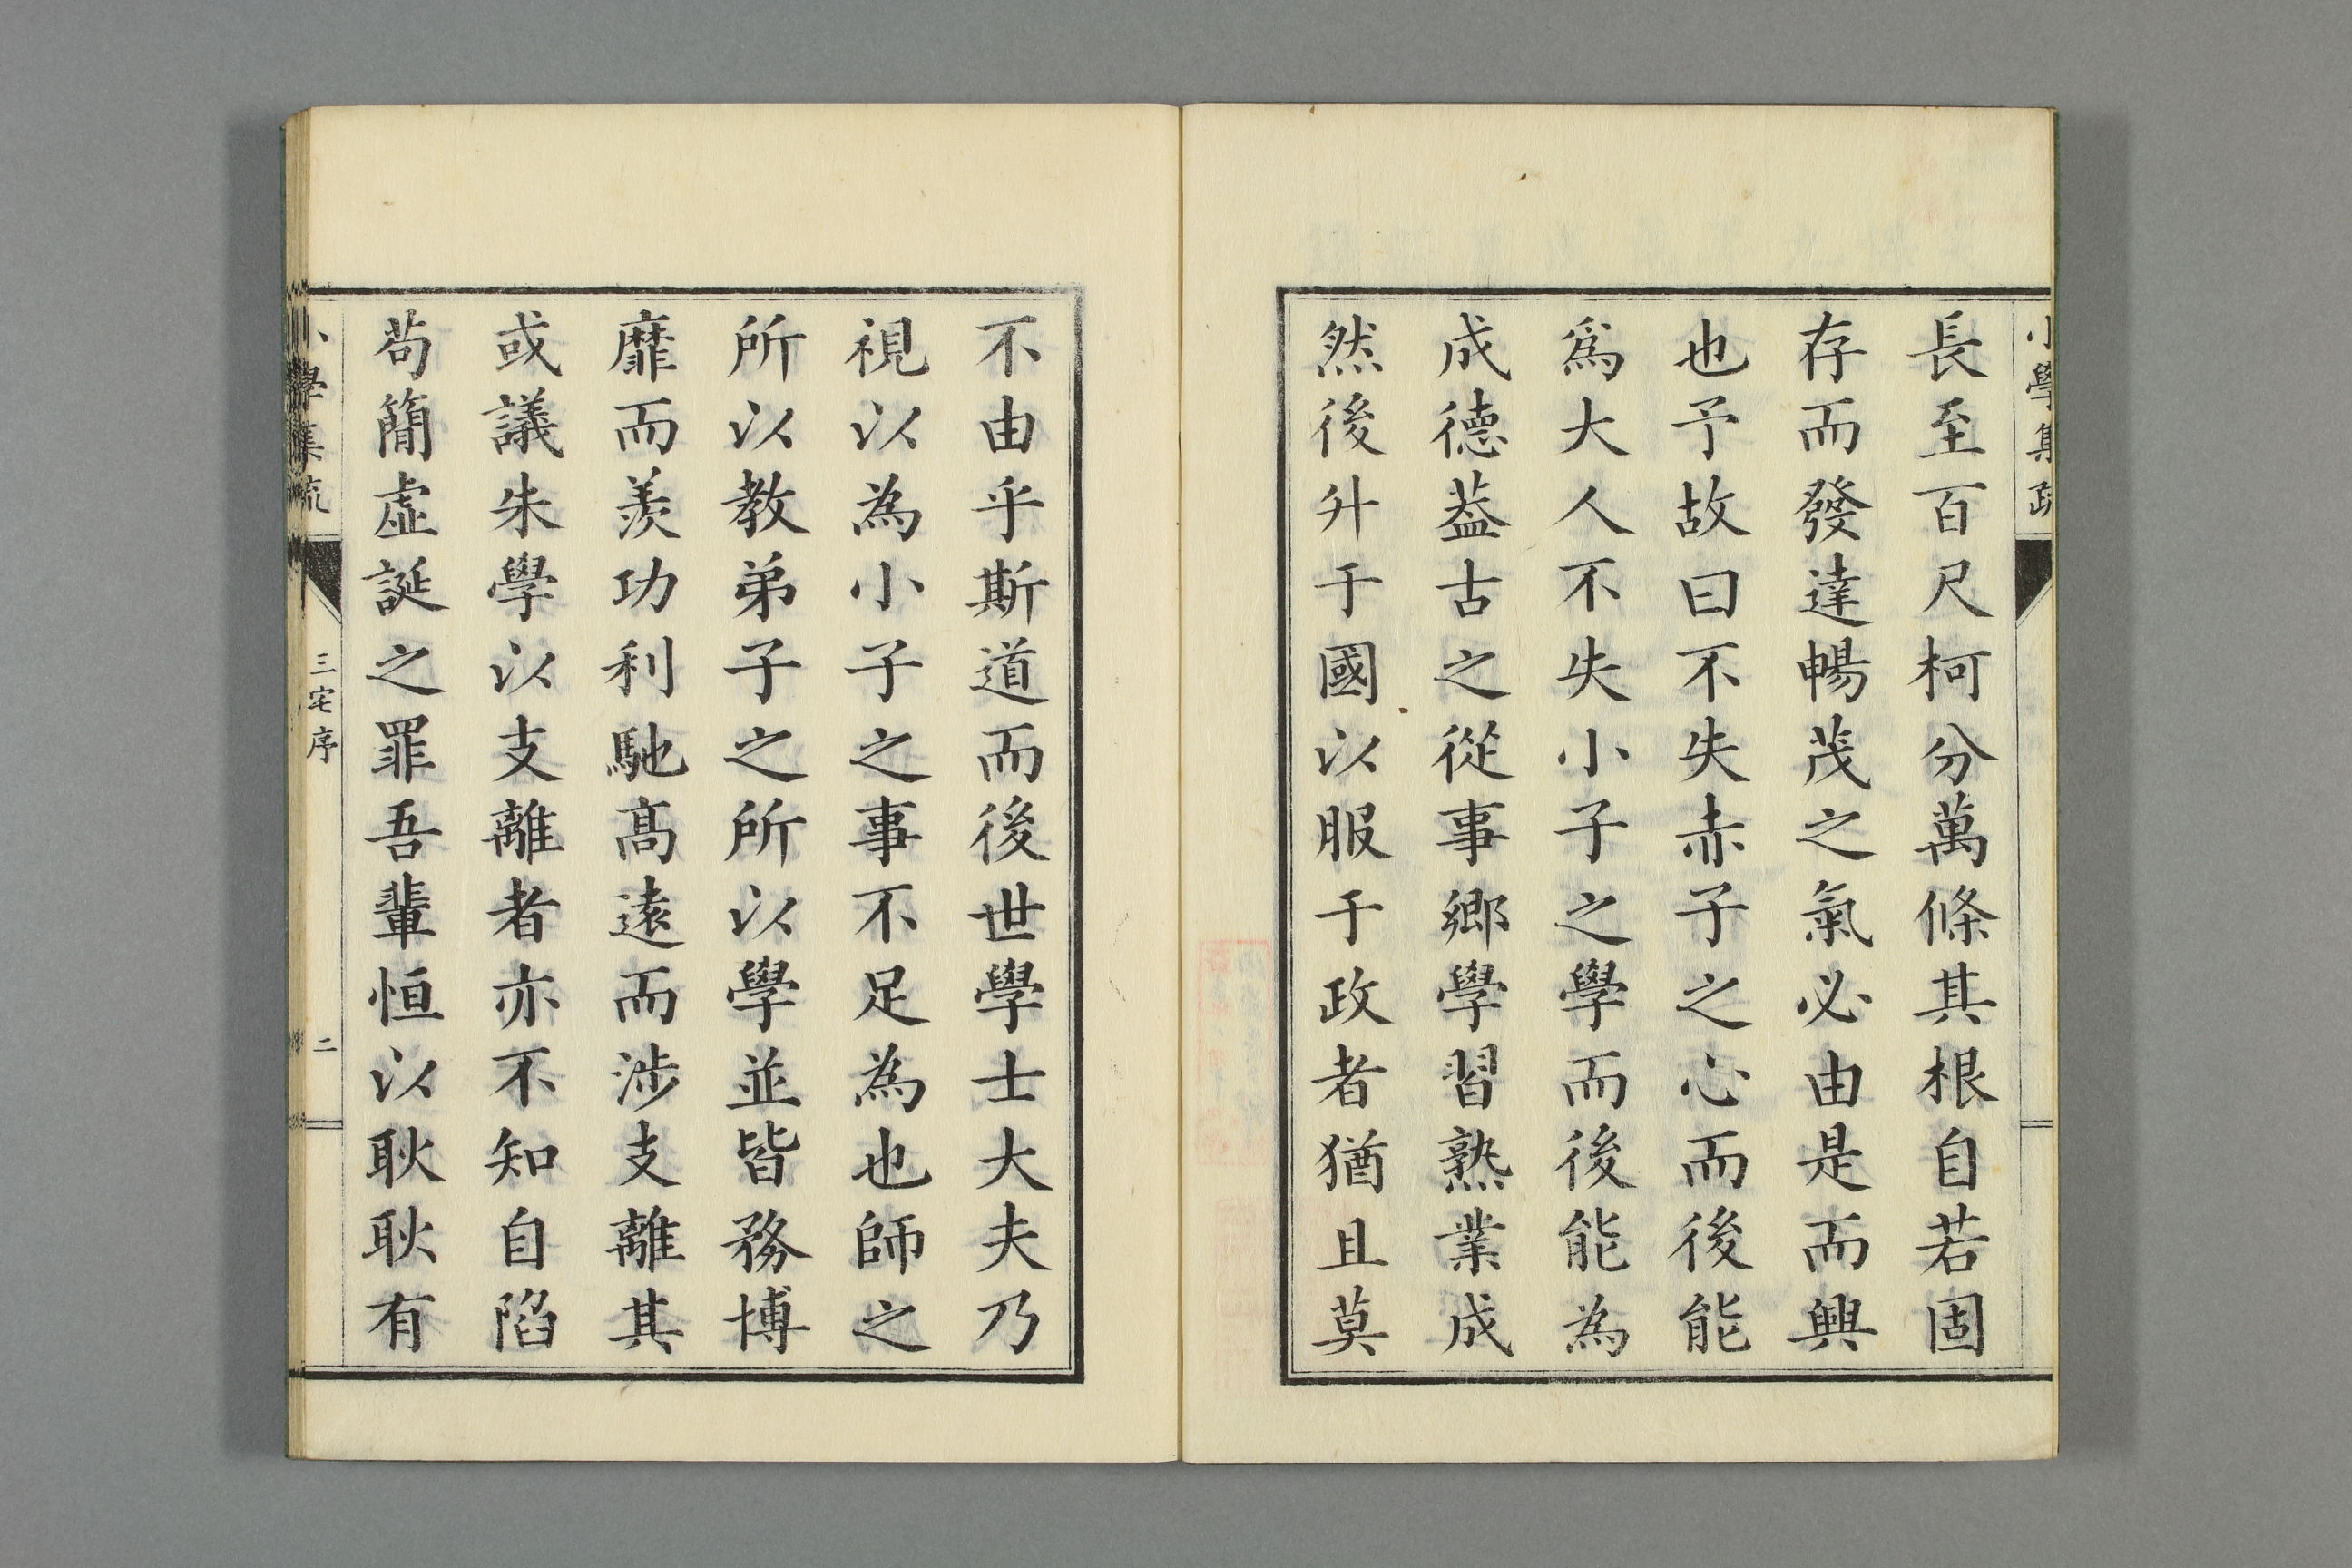 小學集疏
長至百尺柯分萬條其根自若固
存而發達暢茂之氣必由是而興
也予故曰不失赤子之心而後能
爲大人不失小子之學而後能為
成德葢古之從事鄉學習熟業成
然後升于國以服于政者猶且莫
不由乎斯道而後世學士大夫乃
視以為小子之事不足為也師之
所以教弟子之所以學並皆務博
靡而羨功利馳髙遠而涉支離其
或議朱學以支離者亦不知自陷
苟簡虛誕之罪吾輩恒以耿耿有
小學集疏
三宅序
二